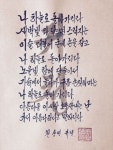 나 하늘로 돌아가리라
새벽빛 와 닿으면 스러지는
이슬 더불어 손에 손을 잡고
나 하늘로 돌아가리라
노을빛 함께 단둘이서
기슭에서 놀다가 구름 손짓하면은
나 하늘로 돌아가리라
아름다운 이 세상 소풍 끝내는 날
가서 아름다웠더라고 말하리라